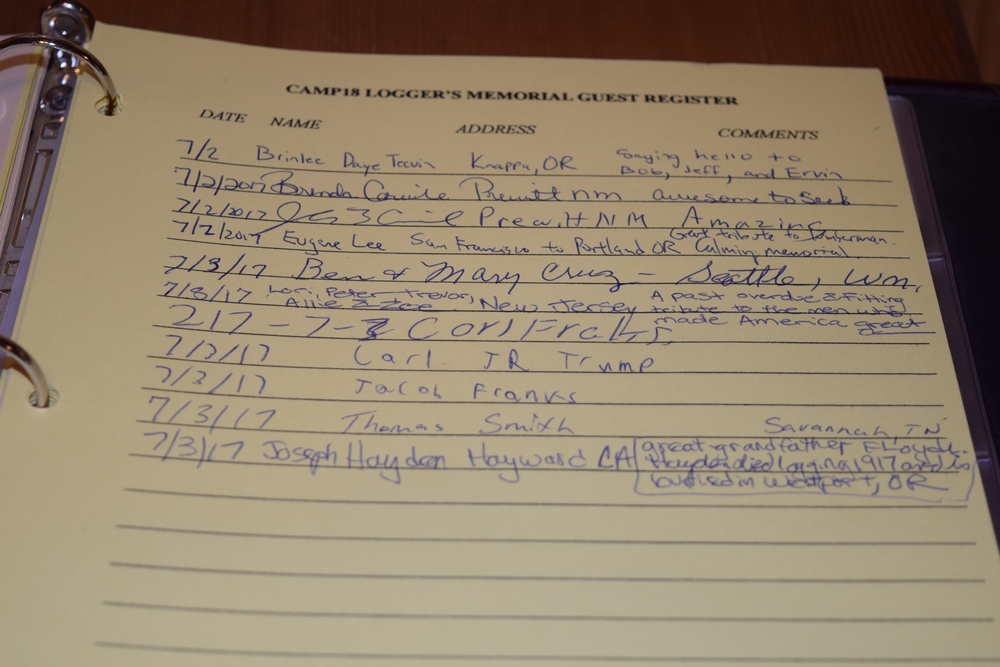 CAMP18 LOGGER'S MEMORIAL GUEST REGISTER
DATE NAME ADDRESS COMMENTS
7/2 Brinlee Daye Knappa, OR Saying hello to
Bob, Jeff, and Ervin
7/2/2017 Brenda nm awesome to
7/2/2017 NM Amazing
7/2/2017 Eugene Lee San Francisco to Portland OR Great tribute to
Calming memorial.
7/3/17 Ben & Mary Cruz - Seattle, Wn.
7/3/17 Lori, Peter, Trevor, New Jersey A past overdue & fitting
Allie & Zoe tribute to the men who
made America great
217-7-3 Carl
7/3/17 Carl JR Trump
7/3/17 Jacob Franks
7/3/17 Thomas Smith Savannah, TN
7/3/17 Joseph Hayden Hayward CA great-grandfather
Hayden died logging 1917 and is
buried in Westport, OR